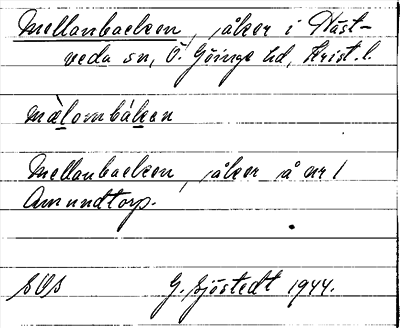 Mellanbacken, åker i Häst-
veda sn, Ö. Göinge hd, Krist. l.
mælombáken
Mellanbacken, åker å nr 1
Amundtorp.
SOS G. Sjöstedt 1944.